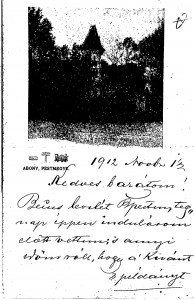 ABONY, PESTMEGYE.
1912 Novb. 13
Kedves barátom!
Becses levelét Bpesten teg
nap éppen indulásom
előtt vettem, s annyi
időm volt, hogy a kívánt
példányt